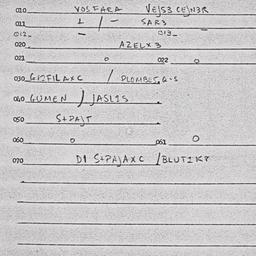 010 VOSFARA VEJS3 CEJN3R
011 1 / – SAR3
012 – 013 –
020 AZELX3
021 0 022 0
030 GIZFILAXC / PLOMBES, G-S
040 GUMEN / JASLIS
050 S+PAJT
060 0 061 0
070 DI S+PAJAXC / BLUTIKT